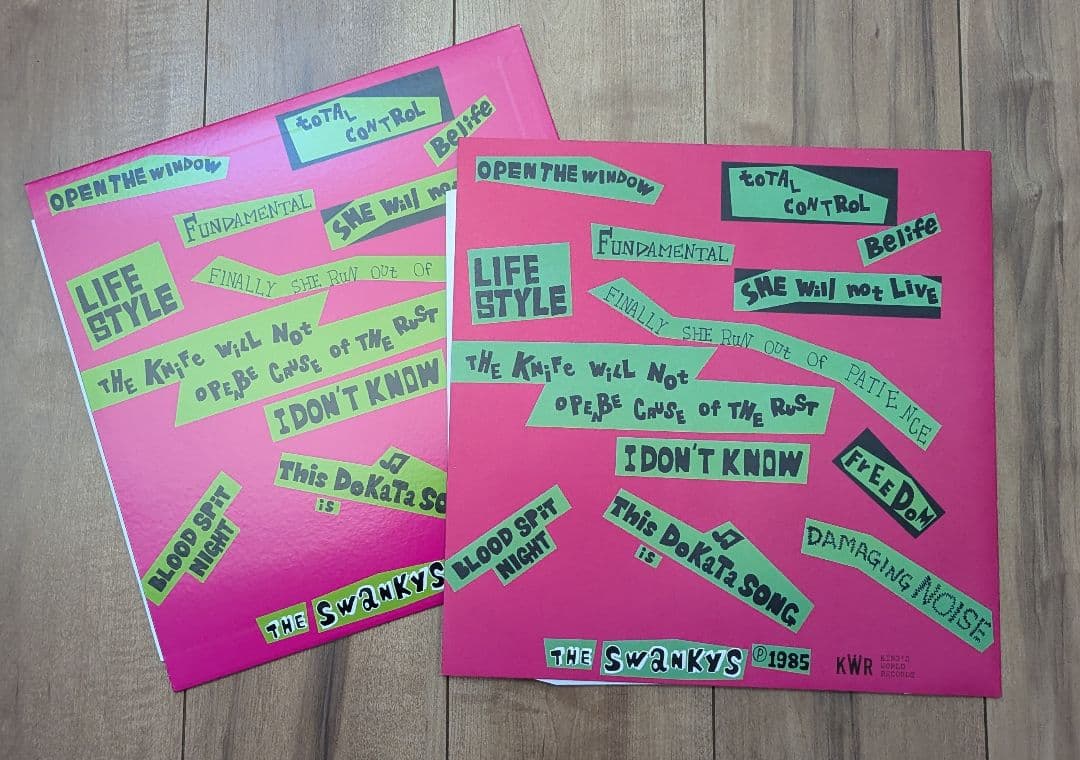 OPEN THE WINDOW
TOTAL
CONTROL
Belife
FUNDAMENTAL
SHE Will no
LIFE
STYLE
FINALLY SHE RUN OUt OF
THE KNiFe WiLL Not
OPENBE CAUSE of THE RUST
I DON'T KNOW
This DoKaTa SO
is
BLOOD SPiT
NIGHT
THE SWANKYS
OPEN THE WINDOW
TOTAL
CONTROL
Belife
FUNDAMENTAL
SHE Will not LIVE
LIFE
STYLE
FINALLY SHE RUN OUt OF PATIENCE
THE KNiFe WiLL Not
OPENBE CAUSE of THE RUST
I DON'T KNOW
FrEEDoM
BLOOD SPiT
NIGHT
This DoKaTa SONG
is
DAMAGING NOISE
THE SWANKYS ℗1985
KWR KING'S
WORLD
RECORDS